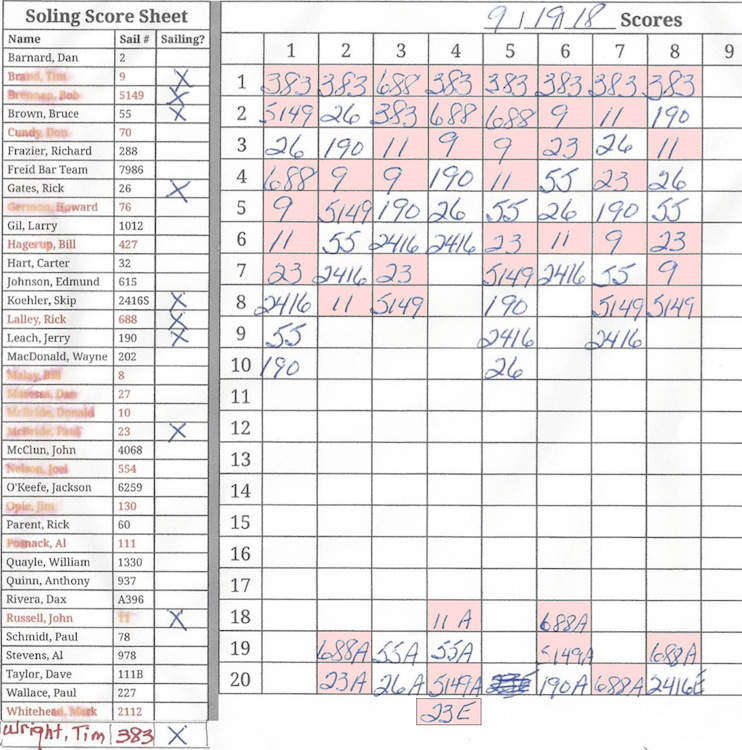 Soling Score Sheet
Name Sail # Sailing?
Barnard, Dan 2
Brand, Tim 9 X
Brennan, Bob 5149 X
Brown, Bruce 55 X
Cundy, Don 70
Frazier, Richard 288
Freid Bar Team 7986
Gates, Rick 26 X
Germon, Howard 76
Gil, Larry 1012
Hagerup, Bill 427
Hart, Carter 32
Johnson, Edmund 615
Koehler, Skip 2416S X
Lalley, Rick 688 X
Leach, Jerry 190 X
MacDonald, Wayne 202
Malay, Bill 8
Dan 27
McBride, Donald 10
McBride, Paul 23 X
McClun, John 4068
Nelson, Joel 554
O'Keefe, Jackson 6259
Opie, Jim 130
Parent, Rick 60
Posnack, Al 111
Quayle, William 1330
Quinn, Anthony 937
Rivera, Dax A396
Russell, John 11 X
Schmidt, Paul 78
Stevens, Al 978
Taylor, Dave 111B
Wallace, Paul 227
Whitehead, Mark 2112
Wright, Tim 383 X
9/19/18 Scores
1 2 3 4 5 6 7 8 9
1 383 383 688 383 383 383 383 383
2 5149 26 383 688 688 9 11 190
3 26 190 11 9 9 23 26 11
4 688 9 9 190 11 55 23 26
5 9 5149 190 26 55 26 190 55
6 11 55 2416 2416 23 11 9 23
7 23 2416 23 5149 2416 55 9
8 2416 11 5149 190 5149 5149
9 55 2416 2416
10 190 26
11
12
13
14
15
16
17
18 11 A 688A
19 688A 55A 55A 5149A 688A
20 23A 26A 5149A 190A 688A 2416E
23E